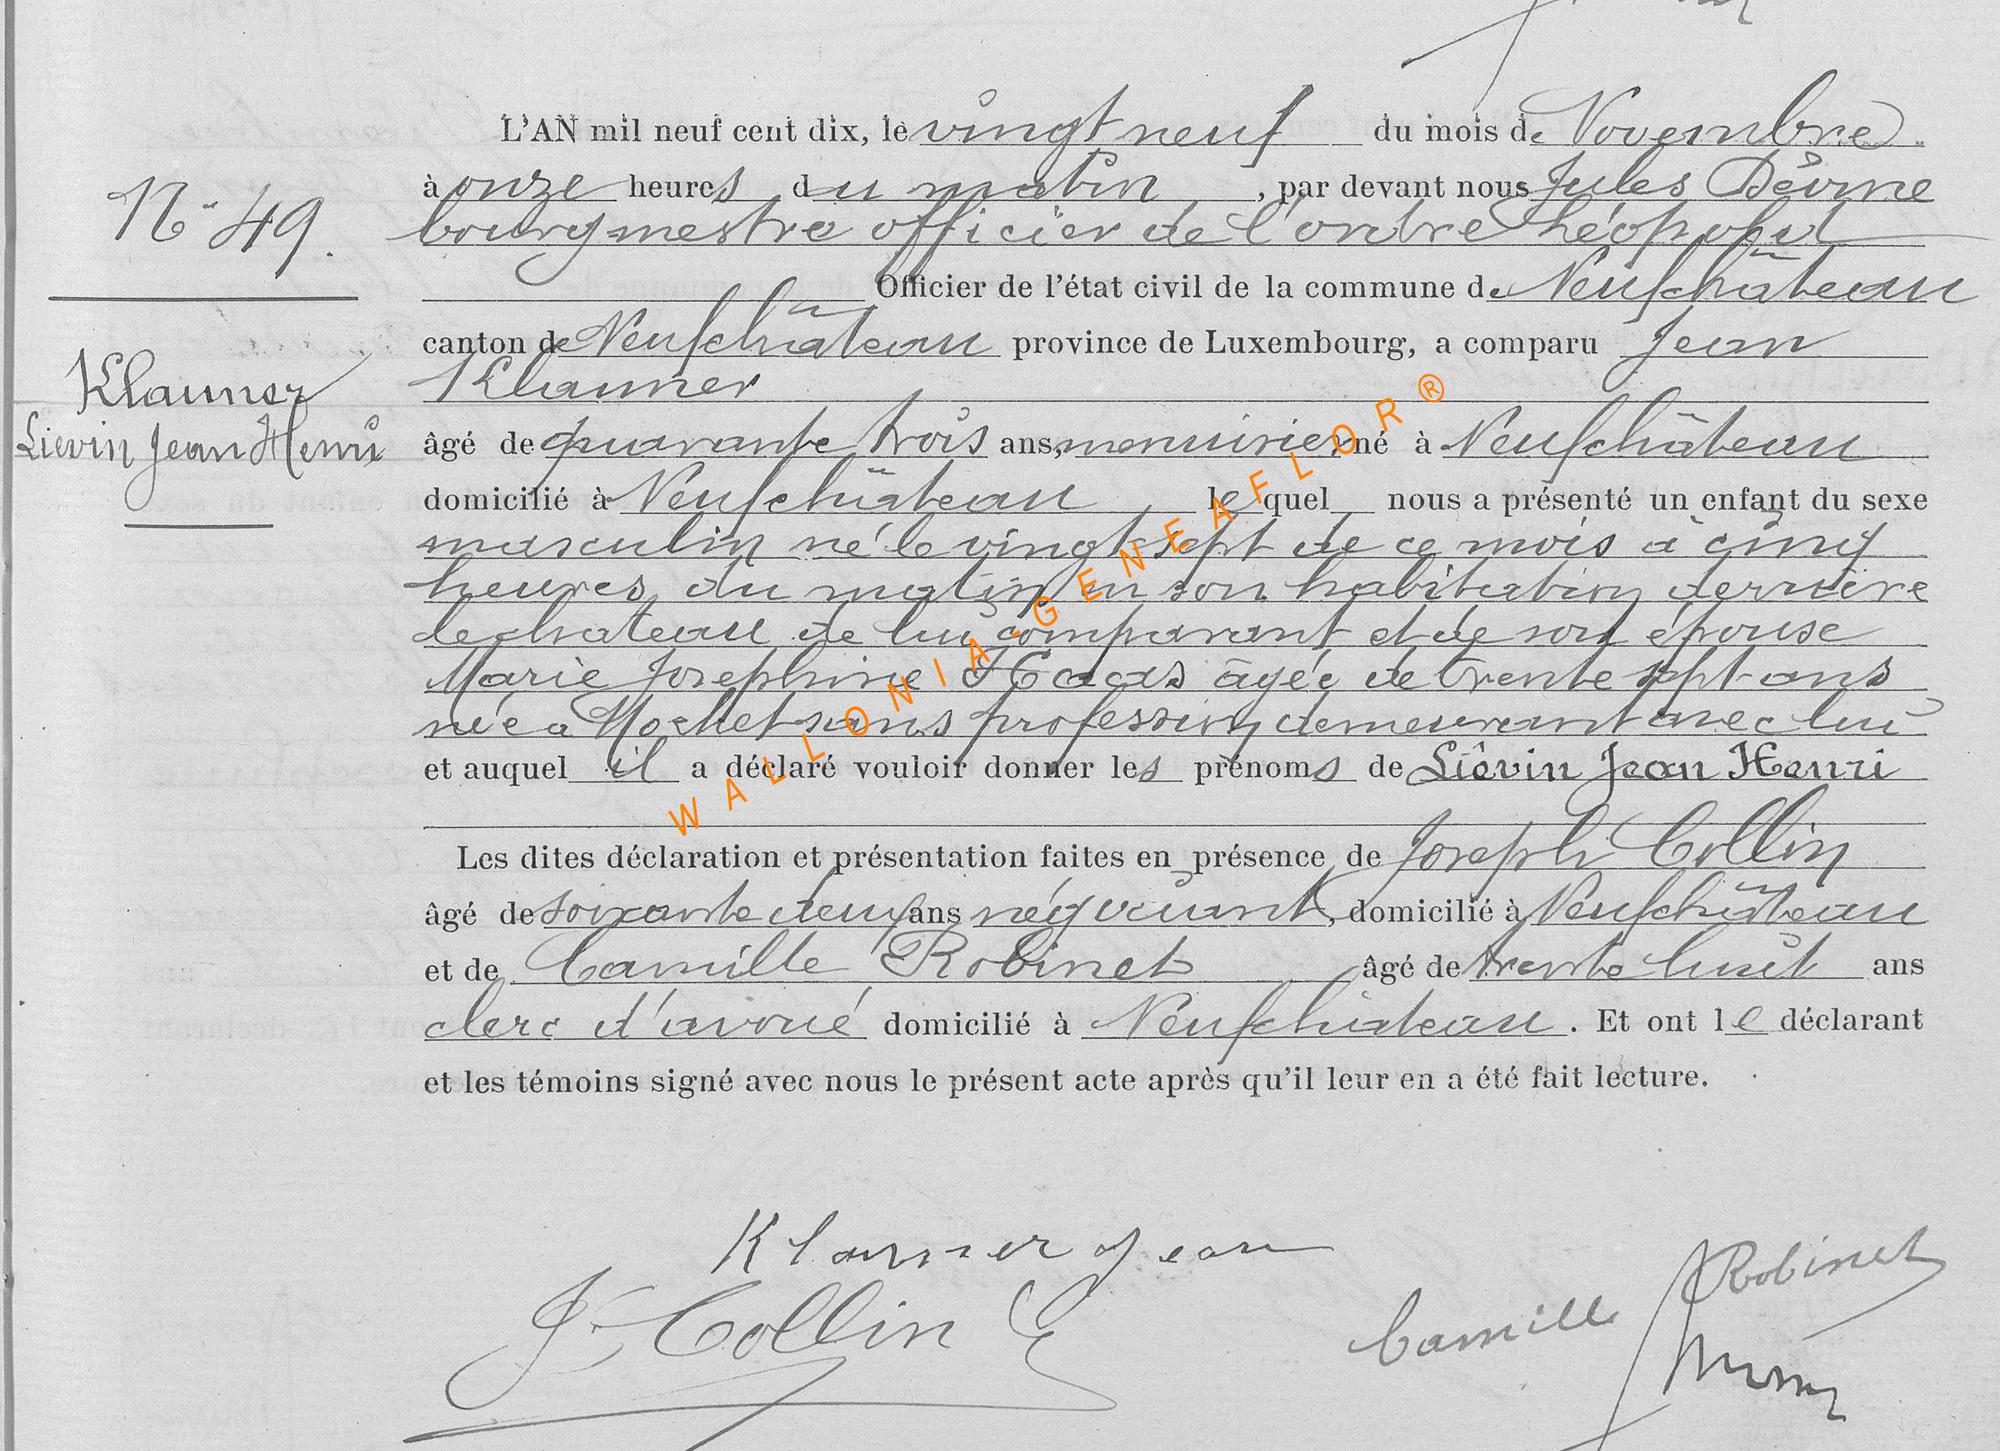 L'AN mil neuf cent dix, le vingt neuf du mois de Novembre
à onze heures du matin, par devant nous Jules
N° 49.
bourgmestre officier de l'ordre Léopold
Officier de l'état civil de la commune de Neufchâteau
canton de Neufchâteau province de Luxembourg, a comparu Jean
Klauner
Klauner
Liévin Jean Henri
âgé de quarante trois ans, menuisier né à Neufchâteau
domicilié à Neufchâteau lequel nous a présenté un enfant du sexe
masculin né le vingt sept de ce mois à cinq
heures du matin en son habitation derrière
le chateau de lui comparant et de son épouse
Marie Josephine âgée de trente sept ans
née a sans profession demeurant avec lui
et auquel il a déclaré vouloir donner les prénoms de Liévin Jean Henri
WALLONIA-GENEAFLOR®
Les dites déclaration et présentation faites en présence de Joseph Collin
âgé de soixante deux ans négociant, domicilié à Neufchâteau
et de Camille Robinet âgé de trente huit ans
clerc d'avoué domicilié à Neufchâteau. Et ont le déclarant
et les témoins signé avec nous le présent acte après qu'il leur en a été fait lecture.
Klauner Jean
J. Collin
Camille Robinet